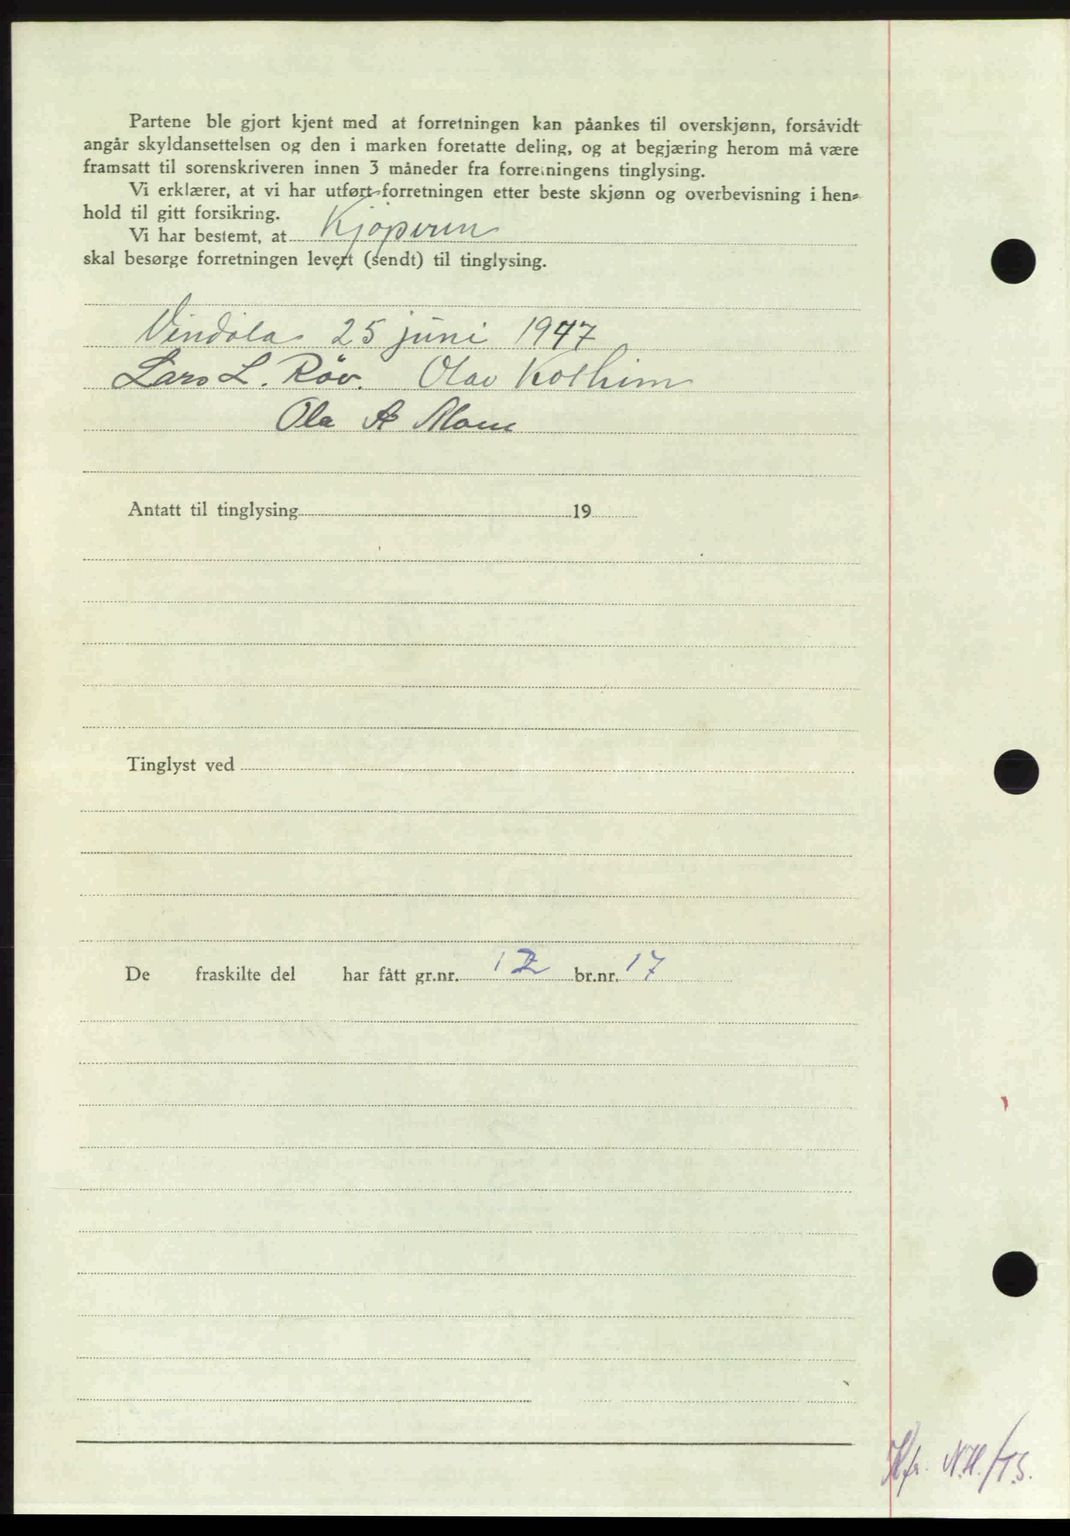 Partene ble gjort kjent med at forretningen kan påankes til overskjønn, forsåvidt
angår skyldansettelsen og den i marken foretatte deling, og at begjæring herom må være
framsatt til sorenskriveren innen 3 måneder fra forretningens tinglysing.
Vi erklærer, at vi har utført forretningen etter beste skjønn og overbevisning i hen-
hold til gitt forsikring.
Vi har bestemt, at Kjöperen
skal besørge forretningen levert (sendt) til tinglysing.
Vindöla 25 juni 1947
Lars L. Röv. Olav Kolheim
Ola A Moen
Antatt til tinglysing 19
Tinglyst ved
De fraskilte del har fått gr.nr. 12 br.nr. 17
Kfr. N.H./T.S.